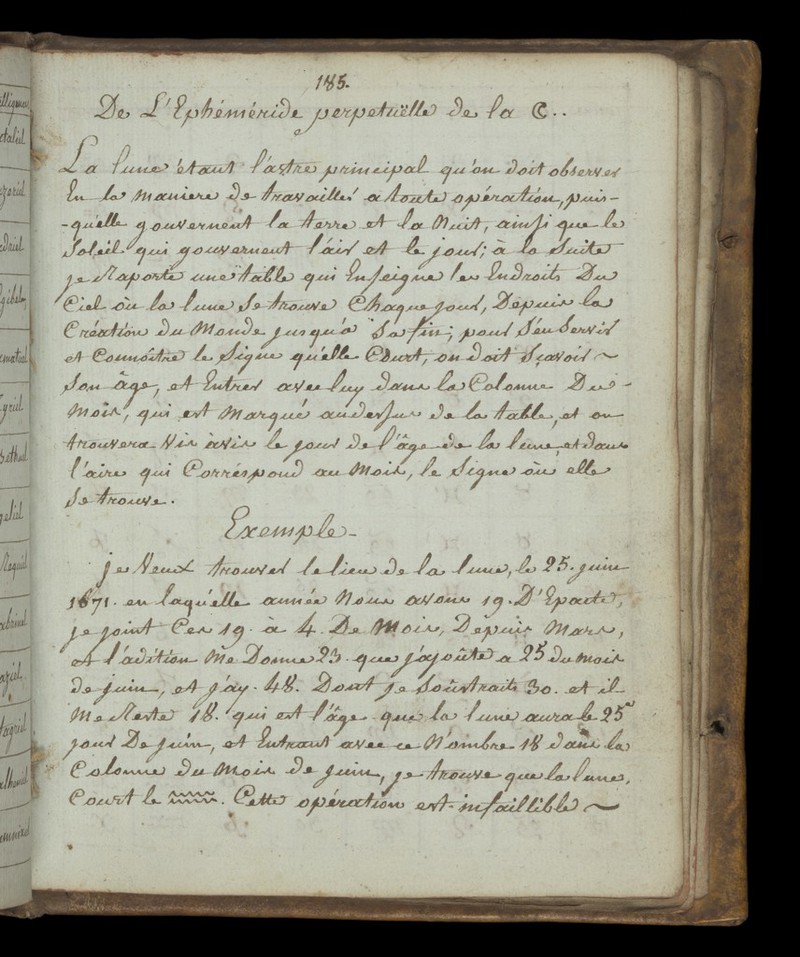 185.
De L'Ephéméride perpetuëlle de la ☾..
La lune étant l'astre principal qu'on doit observer
En la maniere de travailler a toute opération, puis-
-qu'elle gouvernent la terre et la Nuit, ainsi que le
Soleil qui gouvernent l'air et le jour; à la Suite
je Raporte une table qui Enseigne les Endroits Du
Ciel où la lune Se trouve Chaque jour, Dépuis la
Création du Monde jusqu'a Sa fin; pour S'en Servir
et Connoître le Signe qu'elle Court, on doit Sçavoir ~
Son âge, et Entrer avec luy dans la Colonne Du -
Mois, qui est Marqué audessus de la table, et on
trouvera Vis àvis le jour de l'âge de la lune, et dans
l'aire qui Correspond au Mois, le Signe où elle
Se trouve.
Exemple-
je Veux trouver le lieu de la lune, le 25. juin
1671. en laquelle année Nous avons 19. D'Epacte,
je joint Ces 19. à 4. De Mois, Dépuis Mars,
et l'adition Me Donne 23. que j'ajoûte a 25 du mois
de juin, et j'ay. 48. Dont je Soûstraits 30. et il
Me Reste 18. qui est l'âge que la lune aura le 25
jour De juin, et Entrant avec ce Nombre 18 dans la
Colonne du Mois de juin, je trouve que la lune,
Court le ♒. Cette opération est infaillible ~